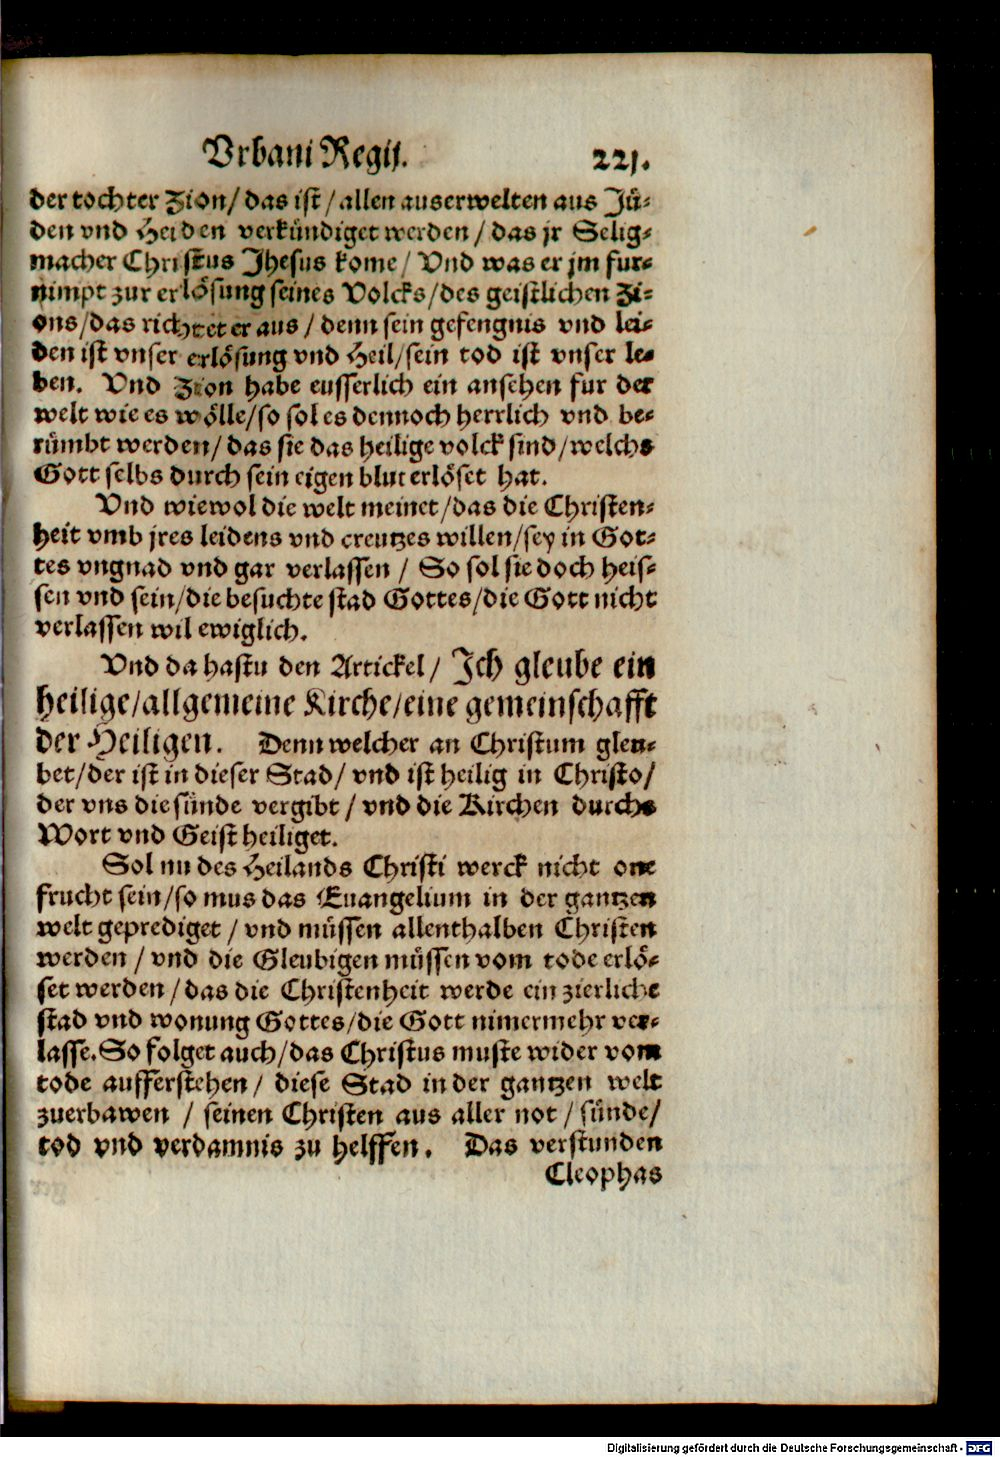 Vrbani Regij. 221.
der tochter Zion/das ist/allen auserwelten aus Jü-
den vnd Heiden verkündiget werden/das jr Selig-
macher Christus Jhesus kome/Vnd was er jm fur-
nimpt zur erlösung seines Volcks/des geistlichen Zi-
ons/das richtet er aus/denn sein gefengnis vnd lei-
den ist vnser erlösung vnd Heil/sein tod ist vnser le-
ben. Vnd Zion habe eusserlich ein ansehen fur der
welt wie es wölle/so sol es dennoch herrlich vnd be-
rümbt werden/das sie das heilige volck sind/welchs
Gott selbs durch sein eigen blut erlöset hat.
Vnd wiewol die welt meinet/das die Christen-
heit vmb jres leidens vnd creutzes willen/sey in Got-
tes vngnad vnd gar verlassen/So sol sie doch heis-
sen vnd sein/die besuchte stad Gottes/die Gott nicht
verlassen wil ewiglich.
Vnd da hastu den Artickel/Ich gleube ein
heilige/allgemeine Kirche/eine gemeinschafft
der Heiligen. Denn welcher an Christum gleu-
bet/der ist in dieser Stad/vnd ist heilig in Christo/
der vns die sünde vergibt/vnd die Kirchen durchs
Wort vnd Geist heiliget.
Sol nu des Heilands Christi werck nicht one
frucht sein/so mus das Euangelium in der gantzen
welt geprediget/vnd müssen allenthalben Christen
werden/vnd die Gleubigen müssen vom tode erlö-
set werden/das die Christenheit werde ein zierliche
stad vnd wonung Gottes/die Gott nimermehr ver-
lasse. So folget auch/das Christus muste wider vom
tode aufferstehen/diese Stad in der gantzen welt
zuerbawen/seinen Christen aus aller not/sünde/
tod vnd verdamnis zu helffen. Das verstunden
Cleophas
Digitalisierung gefördert durch die Deutsche Forschungsgemeinschaft - DFG